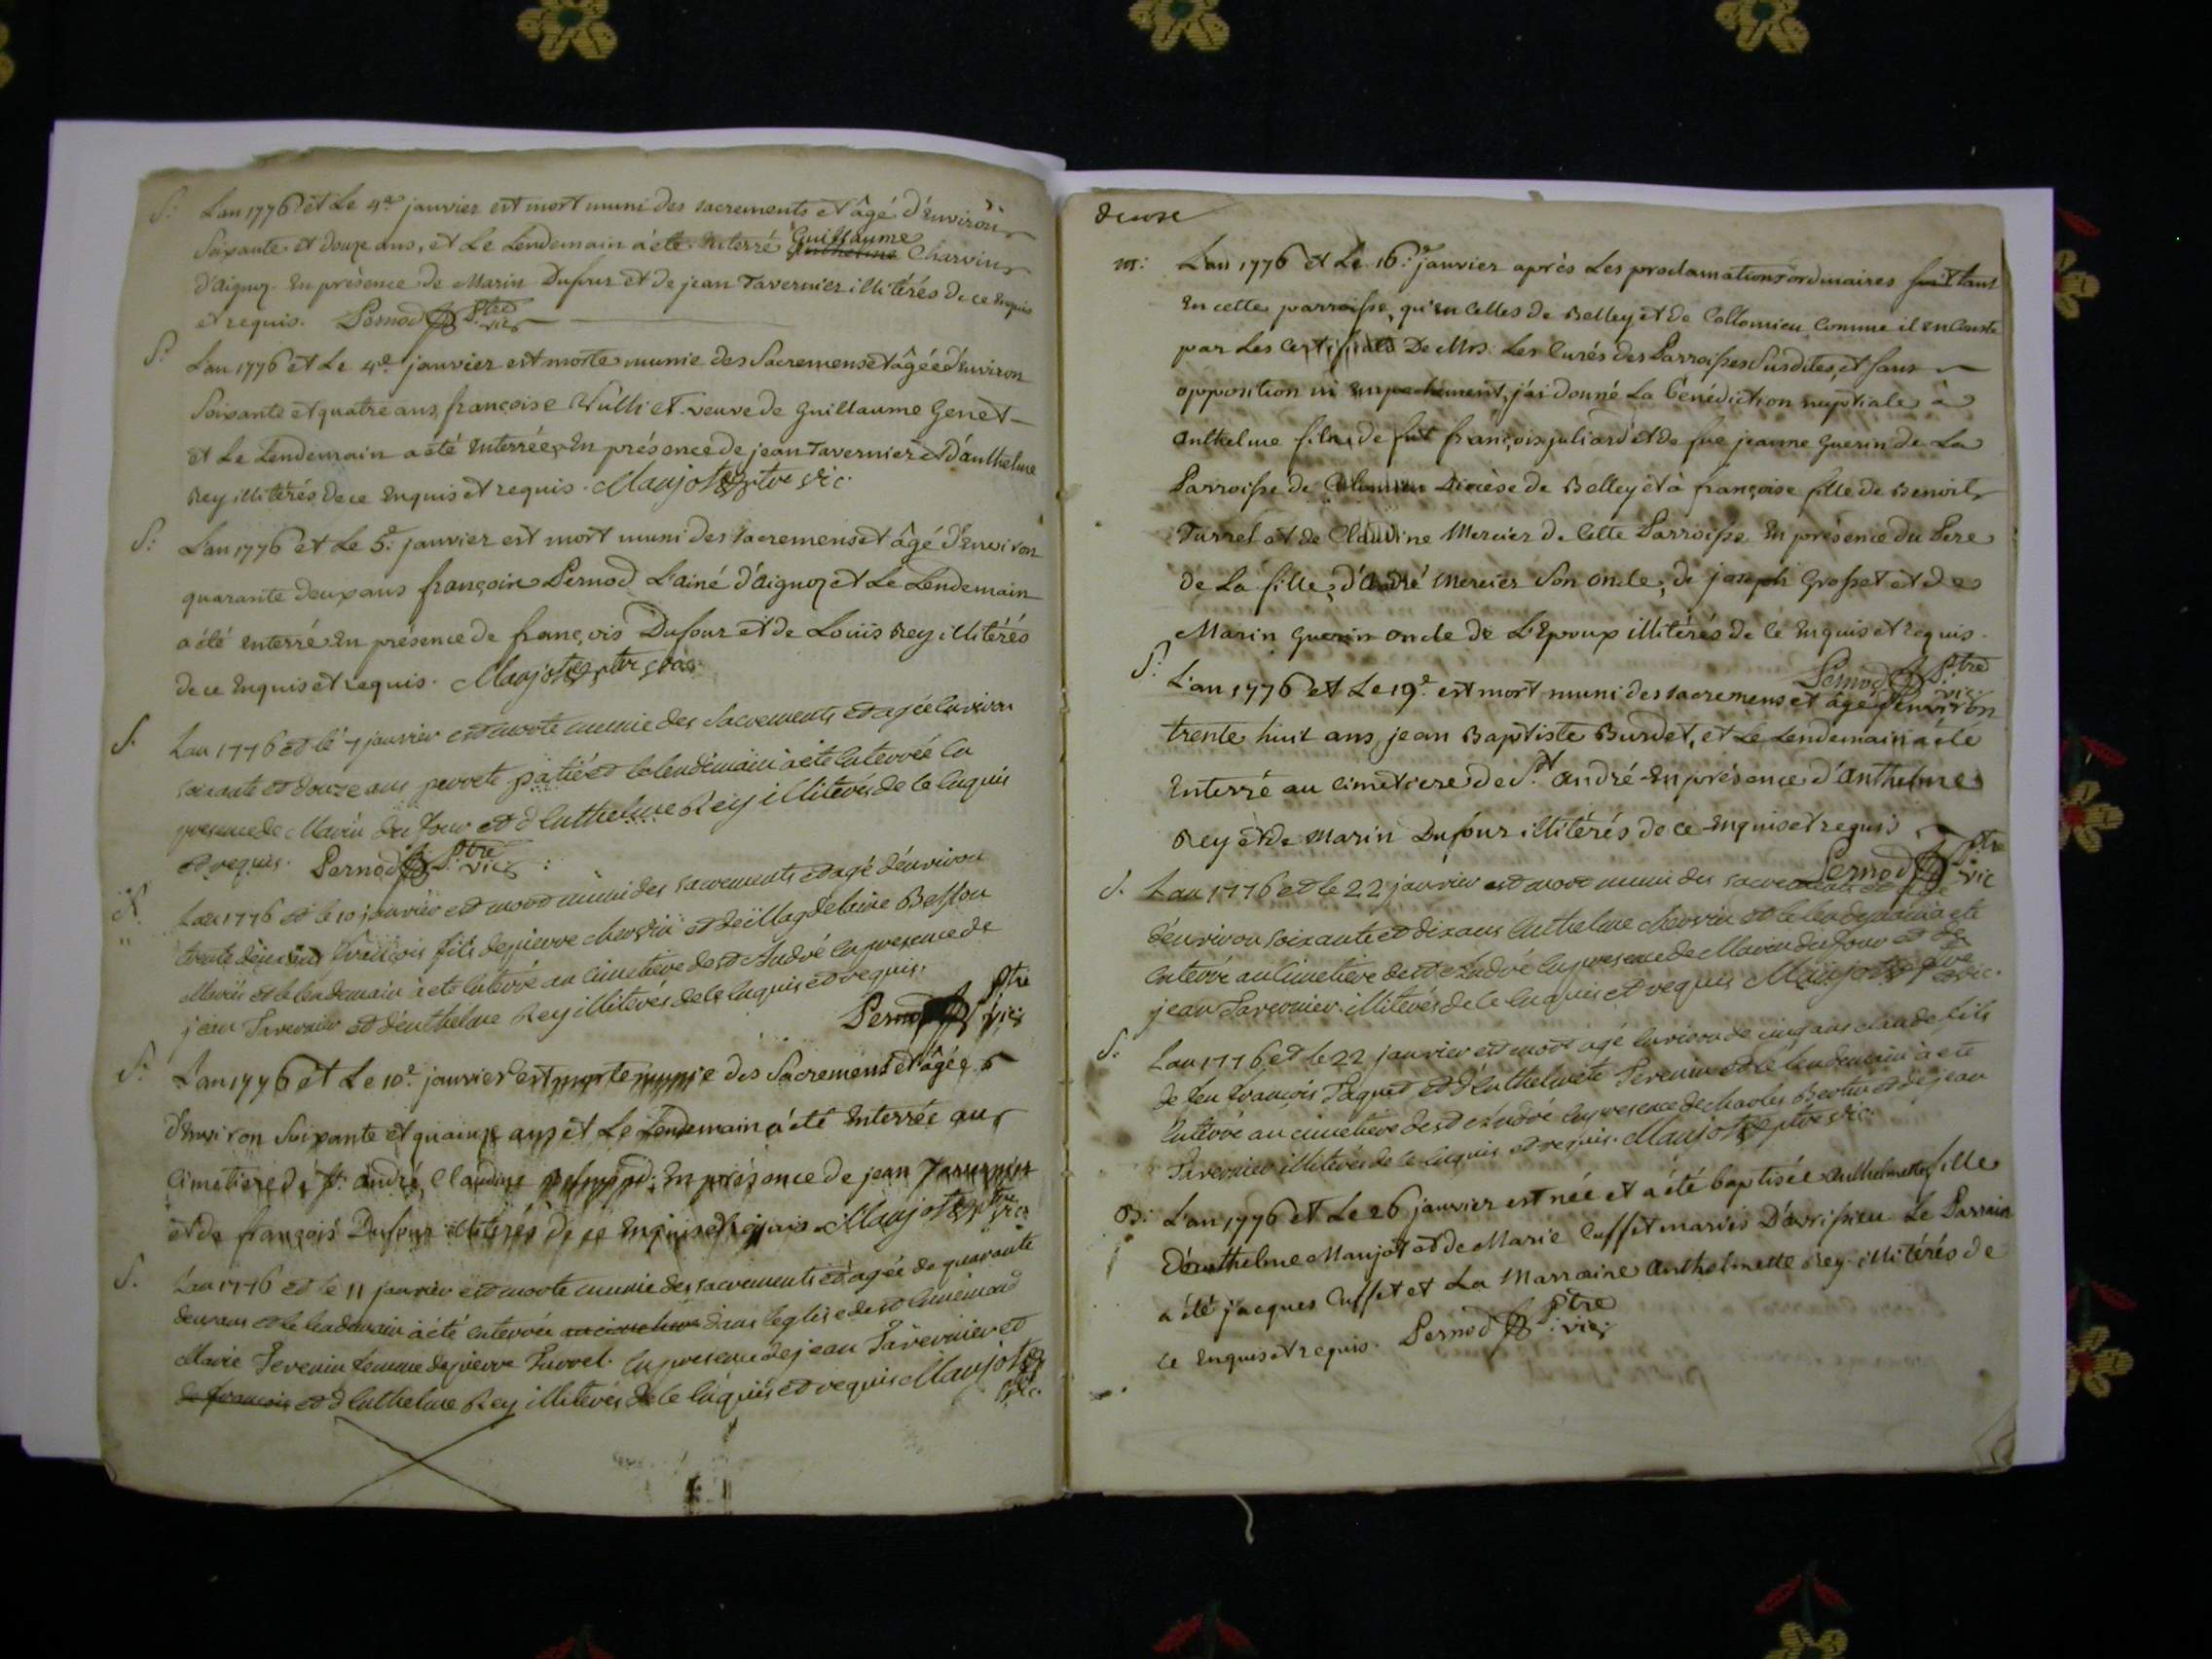 S: L'an 1776 et Le 4e janvier est mort muni des sacrements et âgé d'Environ
Soixante et douze ans, et Le Lendemain a été Enterré Guillaume Charvin
d'Aignoz. En présence de Marin Dufour et de jean Tavernier illitérés de ce Enquis
et requis. Pernod Ptre vic
S: L'an 1776 et Le 4e janvier est morte munie des Sacremens et âgée d'Environ
Soixante et quatre ans, françoise veuve de Guillaume Genet
et Le Lendemain a été Enterrée En présence de jean Tavernier et d'anthelme
Rey illitérés de ce Enquis et requis. Maujot ptre vic.
S: L'an 1776 et Le 5e janvier est mort muni des sacremens et âgé d'Environ
quarante deux ans françois Pernod L'ainé d'Aignoz et Le Lendemain
a été Enterré En présence de françois Dufour et de Louis Rey illitérés
de ce Enquis et requis. Maujot ptre vic.
S. Lan 1776 et le 7 janvier est morte munie des Sacrements et agée Environ
soixante et douze ans perrete patié et le lendemain a ete Enterrée En
presence de Marin du four et d Enthelme Rey illiterés de ce Enquis
et requis. Pernod Ptre vic
S. Lan 1776 et le 10 janvier est mort muni des sacrements et agé d'environ
trente françois fils de pierre et de Magdeleine Besson
Mariés et le lendemain a ete Enterré au Cimetiere de st André En presence de
jean Tavernier et d'enthelme Rey illiterés de ce Enquis et requis.
Pernod Ptre vic
S: L'an 1776 et Le 10e janvier est morte munie des Sacremens et âgée
d'Environ Soixante et quainze ans et Le Lendemain a été Enterrée au
Cimetiere de St. andré, Claudine En présence de jean Tavernier
et de françois Dufour illitérés de ce Enquis et requis. Maujot ptre vic.
S. Lan 1776 et le 11 janvier est morte munie des sacrements et agée de quarante
deux ans et le lendemain a été enterrée dans leglise de st
Marie Tevenin femme de pierre Turrel. En presence de jean Tavernier et
de francois et d Enthelme Rey illiterés de ce Enquis et requis Maujot
vic.
deuxe
m: L'an 1776 et Le 16e janvier après Les proclamations ordinaires fait tant
En cette parroisse, qu'en Celles de Belley et de Collomieu Comme il en Conste
par Les Certificats De Mrs. Les Curés des Parroisses Susdites, et sans
opposition ni Empechement, j'ai donné La bénédiction nuptiale à
anthelme fils de fut françois juliard et de fue jeanne Guerin de La
Parroisse de Colomieu Diocèse de Belley et à françoise fille de Benoit
Turrel et de Claudine Mercier de Cette Parroisse En présence du Pere
de La fille, d'André Mercier son oncle, de joseph Grosset et de
Marin Guerin oncle de L'Epoux illitérés de ce Enquis et requis.
Pernod Ptre vic.
S: L'an 1776 et Le 19e est mort muni des sacremens et âgé d'Environ
trente huit ans, jean Baptiste Burdet, et Le Lendemain a éte
Enterré au Cimetiere de St. andré En présence d'Anthelme
Rey et de Marin Dufour illitérés de ce Enquis et requis
Pernod Ptre vic
S. Lan 1776 et le 22 janvier est mort muni des sacrements et agé
d'environ soixante et dix ans Enthelme et le lendemain a ete
Enterré au Cimetiere de st André En presence de Marin du four et de
jean Tavernier illiterés de ce Enquis et requis Maujot ptre vic.
S. Lan 1776 et le 22 janvier est mort agé Environ de cinq ans claude fils
de feu francois Paquet et d'Enthelmete Tevenin et le lendemain a ete
Enterré au cimetiere de st André En presence de Charles Bertin et de jean
Tavernier illiterés de ce Enquis et requis. Maujot ptre vic.
B: L'an 1776 et Le 26 janvier est née et a été baptisée Anthelmette fille
d'Anthelme Maujot et de Marie Cuffet mariés D'avrissieu Le Parrain
a été jacques Cuffet et La Marraine Anthelmette Rey illitérés de
ce Enquis et requis. Pernod Ptre vic.